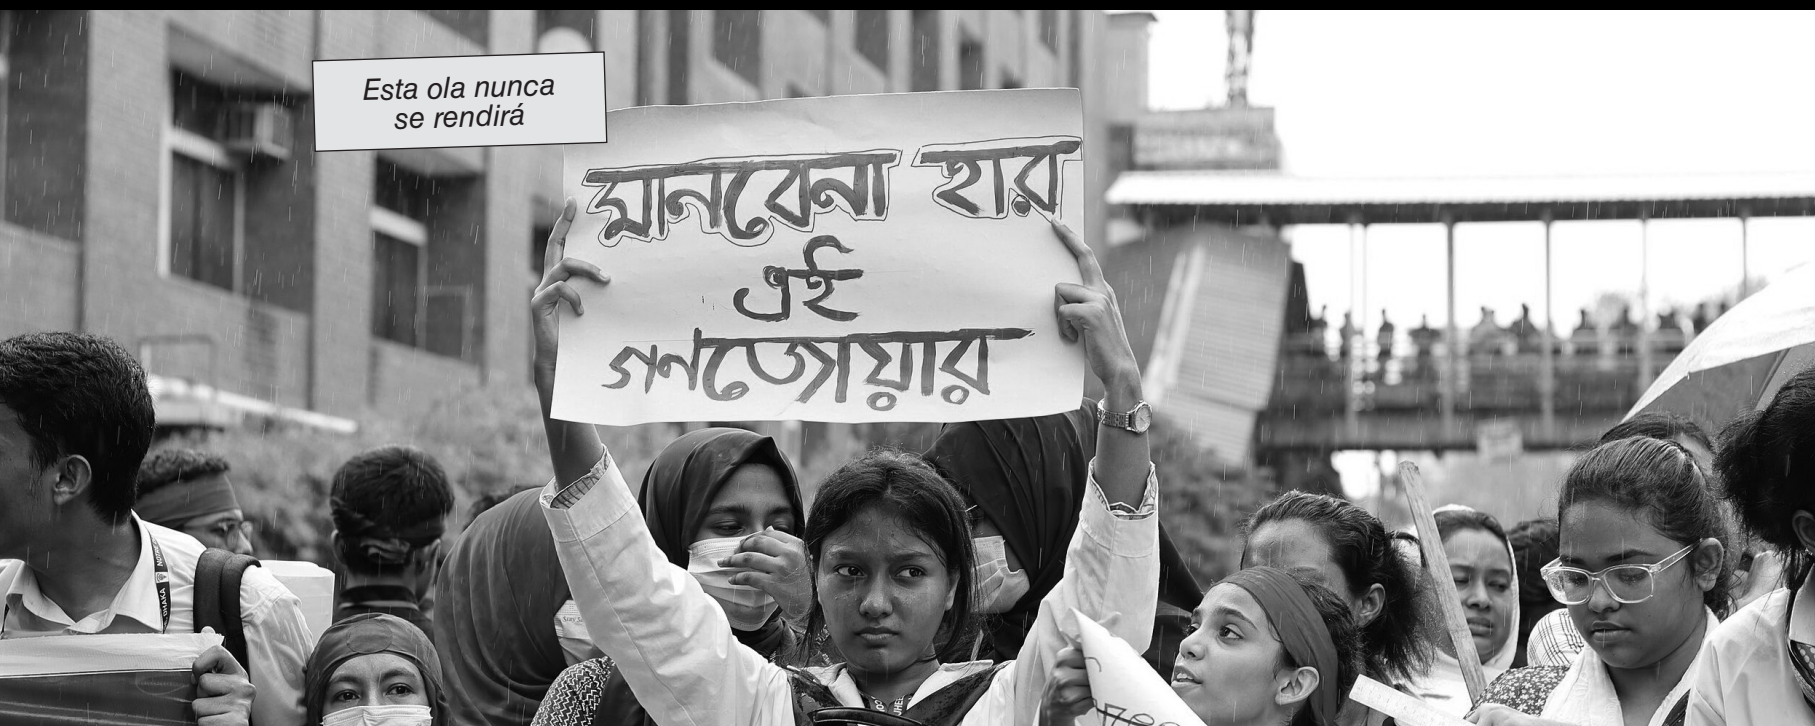 Esta ola nunca
se rendirá
মানবেনা হার
এই
গনজোয়ার
DHAKA